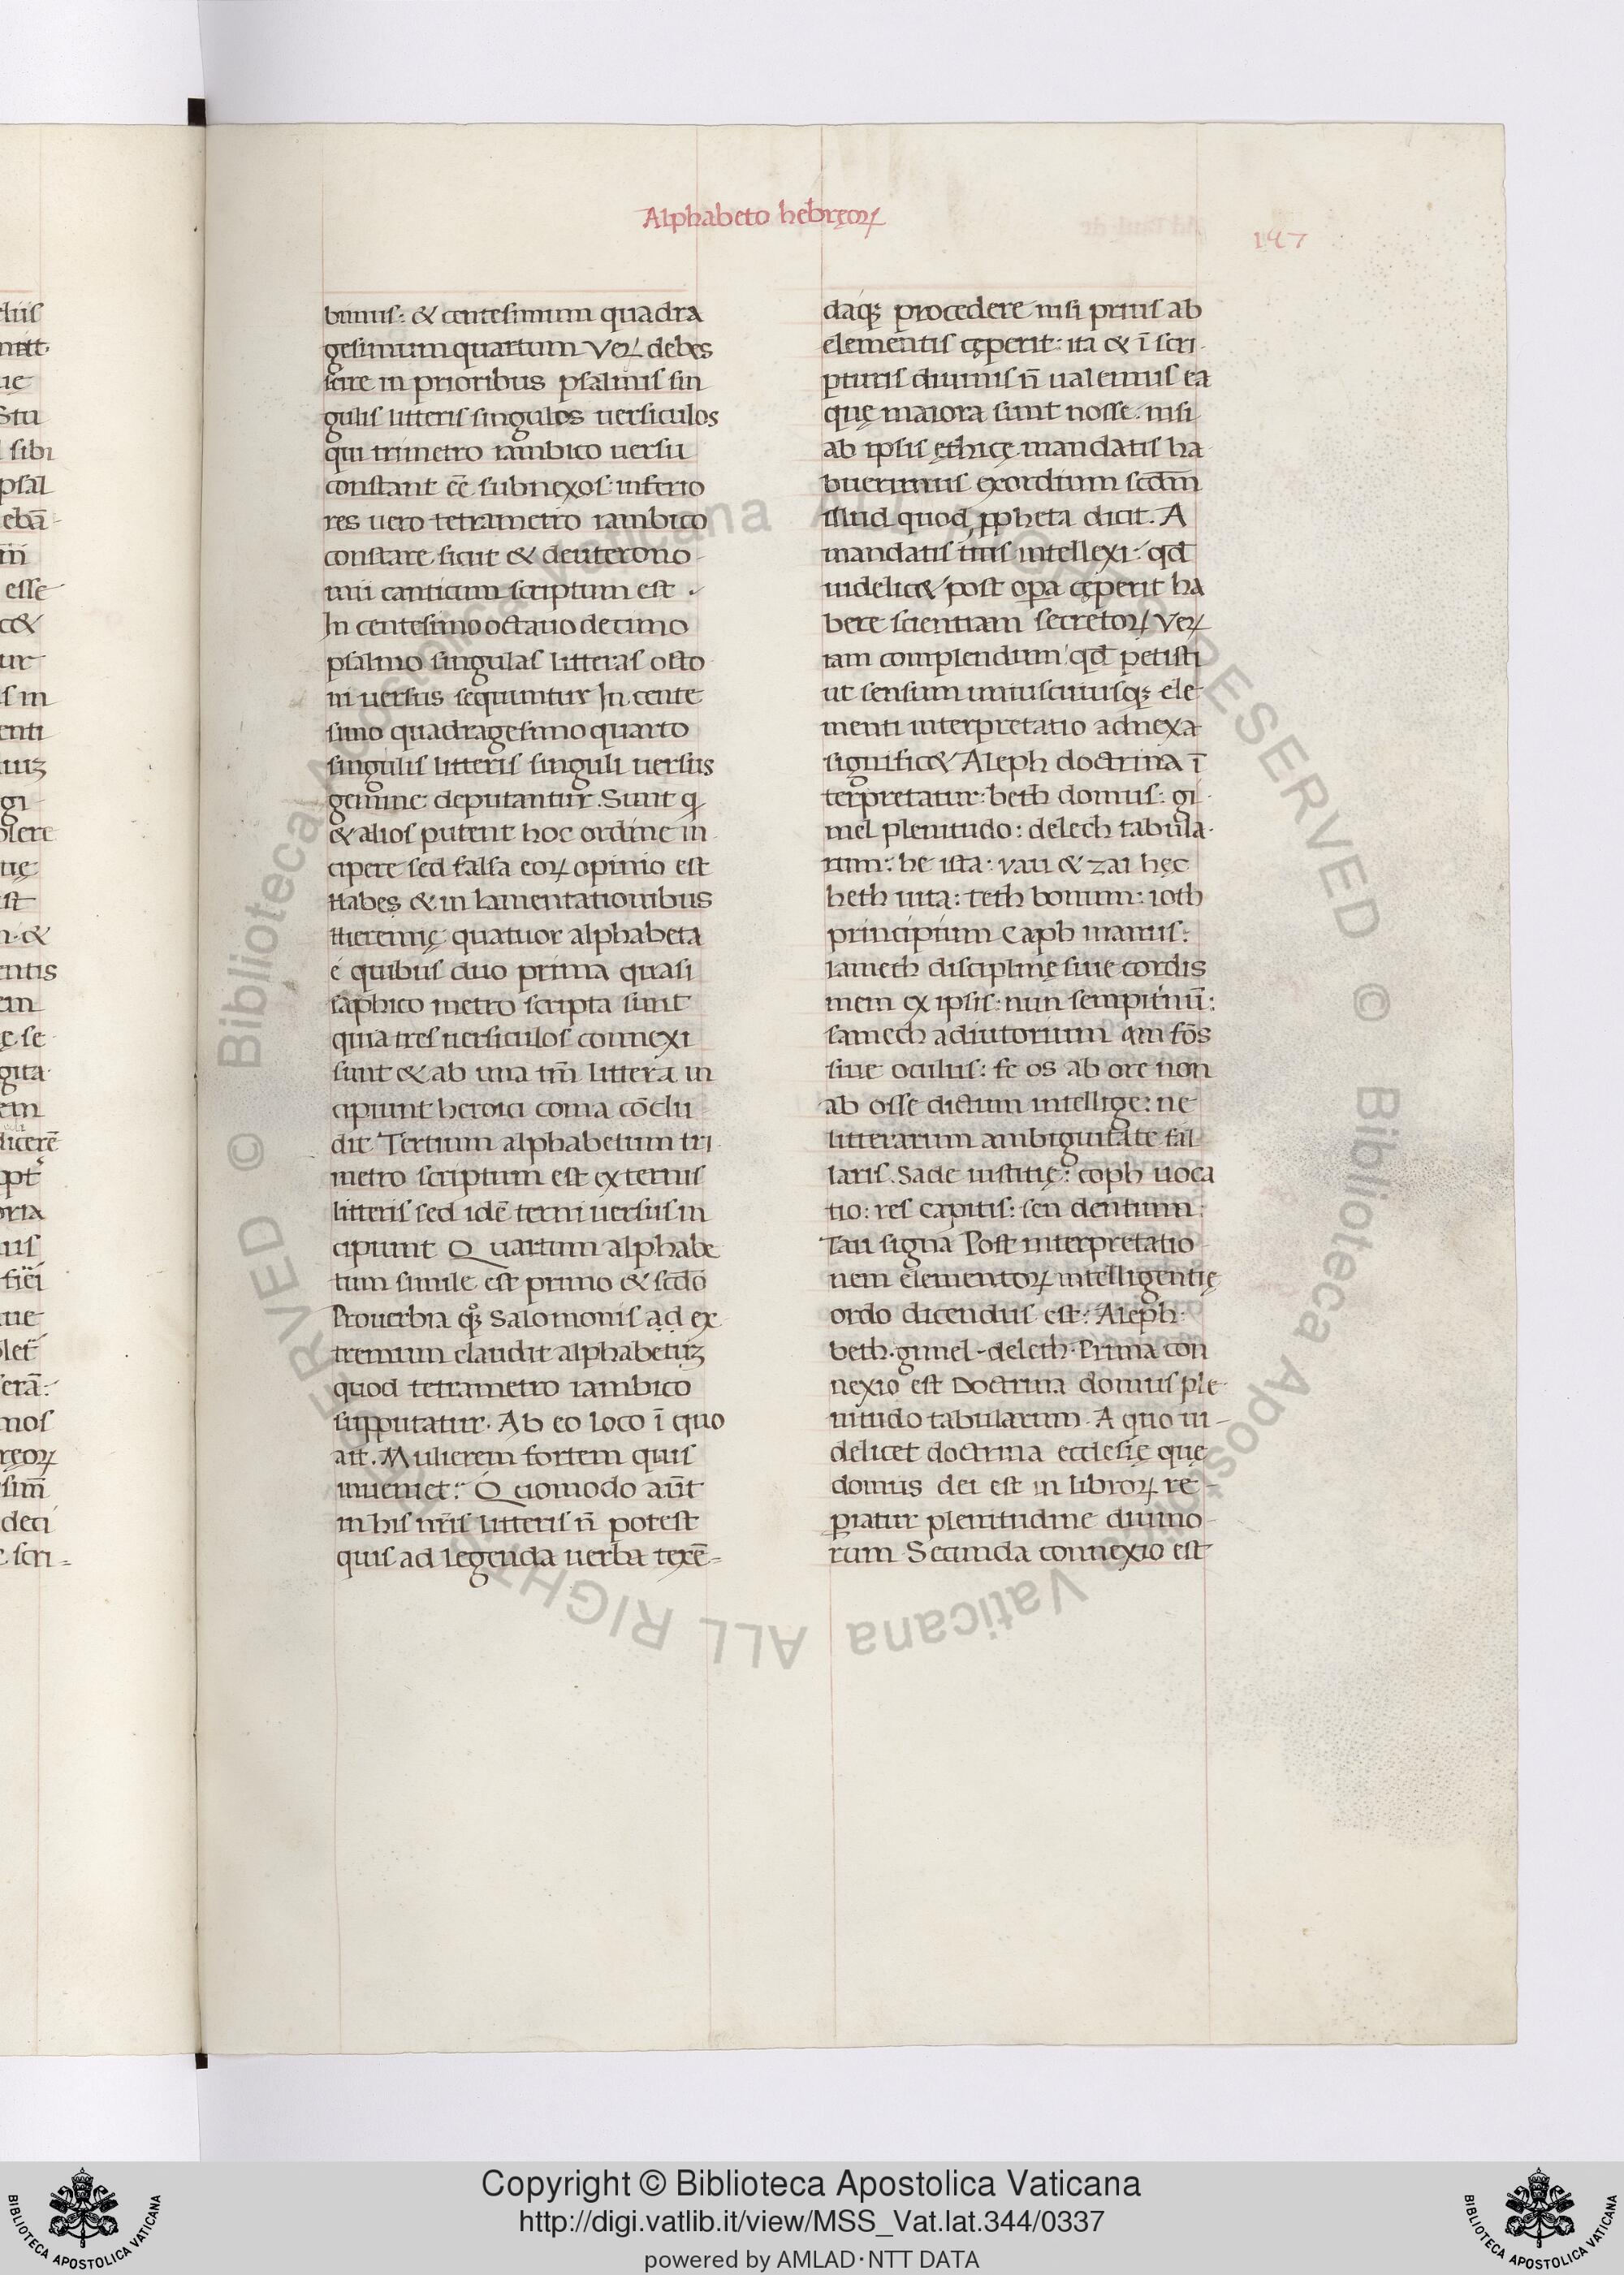 Alphabeto hebręoꝝ
147
bimus: & centesimum quadra
gesimum quartum Veꝝ debes
scire in prioribus psalmis sin
gulis litteris singulos uersiculos
qui trimetro iambico uersu
constant eē subnexos inferio
res uero tetrametro iambico
constare sicut & deuterono-
mii canticum scriptum est.
In centesimo octauo decimo
psalmo singulas litteras octo
ni uersus sequuntur In cente
simo quadragesimo quarto
singulis litteris singuli uersus
gemine deputantur. Sunt q
& alios putent hoc ordine in-
cipere sed falsa eoꝝ opinio est
Habes & in lamentationibus
Hieremię quatuor alphabeta
é quibus duo prima quasi
saphico metro scripta sunt
quia tres uersiculos connexi
sunt & ab una tm̄ littera in
cipiunt heroici coma cōclu-
dit Tertium alphabetum tri-
metro scriptum est ex ternis
litteris sed idē terni uersus in
cipiunt Quartum alphabe
tum simile est primo & scdō
Prouerbia qꝫ Salomonis ad ex-
tremum claudit alphabetuꝫ
quod tetrametro iambico
supputatur. Ab eo loco ī quo
ait. Mulierem fortem quis
inueniet: Quomodo aūt
in his nr̄is litteris n̄ potest
quis ad legenda uerba texē-
daqꝫ procedere nisi prius ab
elementis cęperit: ita & ī scri-
pturis diuinis n̄ ualemus ea
quę maiora sunt nosse: nisi
ab ipsis ęthicę mandatis ha-
buerimus exordium scdm̄
illud quod ꝓpheta dicit. A
mandatis tuis intellexi: qd̄
uidelic& post oꝑa cęperit ha
bere scientiam secretoꝝ Veꝝ
iam complendum qd̄ petisti
ut sensum uniuscuiusqꝫ ele-
menti interpretatio adnexa
signific& Aleph doctrina ī
terpretatur: beth domus: gi-
mel plenitudo: delech tabula-
rum: he ista: vau & zai hęc
heth uita: teth bonum: ioth
principium Caph manus:
lameth disciplinę siue cordis
mem ex ipsis: nun sempit'nū:
samech adiutorium ain fōs
siue oculus: fe os ab ore non
ab osse dictum intellige: ne
litterarum ambiguitate fal-
laris. Sade iustitię: coph uoca
tio: res capitis: sen dentium:
Tau signa Post interpretatio-
nem elementoꝝ intelligentię
ordo dicendus est: Aleph·
beth·gimel-deleth·Prima con
nexio est Doctrina domus ple-
nitudo tabularum. A quo ui-
delicet doctrina ecclesię quę
domus dei est in libroꝝ re-
ꝑiatur plenitudine diuino-
rum Secunda connexio est
Copyright © Biblioteca Apostolica Vaticana
http://digi.vatlib.it/view/MSS_Vat.lat.344/0337
powered by AMLAD·NTT DATA